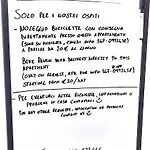 SOLO PER I NOSTRI OSPITI
- NOLEGGIO BICICLETTE CON CONSEGNA
DIRETTAMENTE PRESSO QUESTO APPARTAMENTO
A PARTIRE DA 20€ AL GIORNO
- BIKE RENTAL WITH DELIVERY DIRECTLY TO THIS
APARTMENT
STARTING FROM €20/DAY
- PER EVENTUALI ALTRE RICHIESTE, INFORMAZIONI O
PROBLEMI IN CASA CONTATTACI
FOR ANY OTHER REQUEST, INFORMATION OR PROBLEMS
CONTACT US